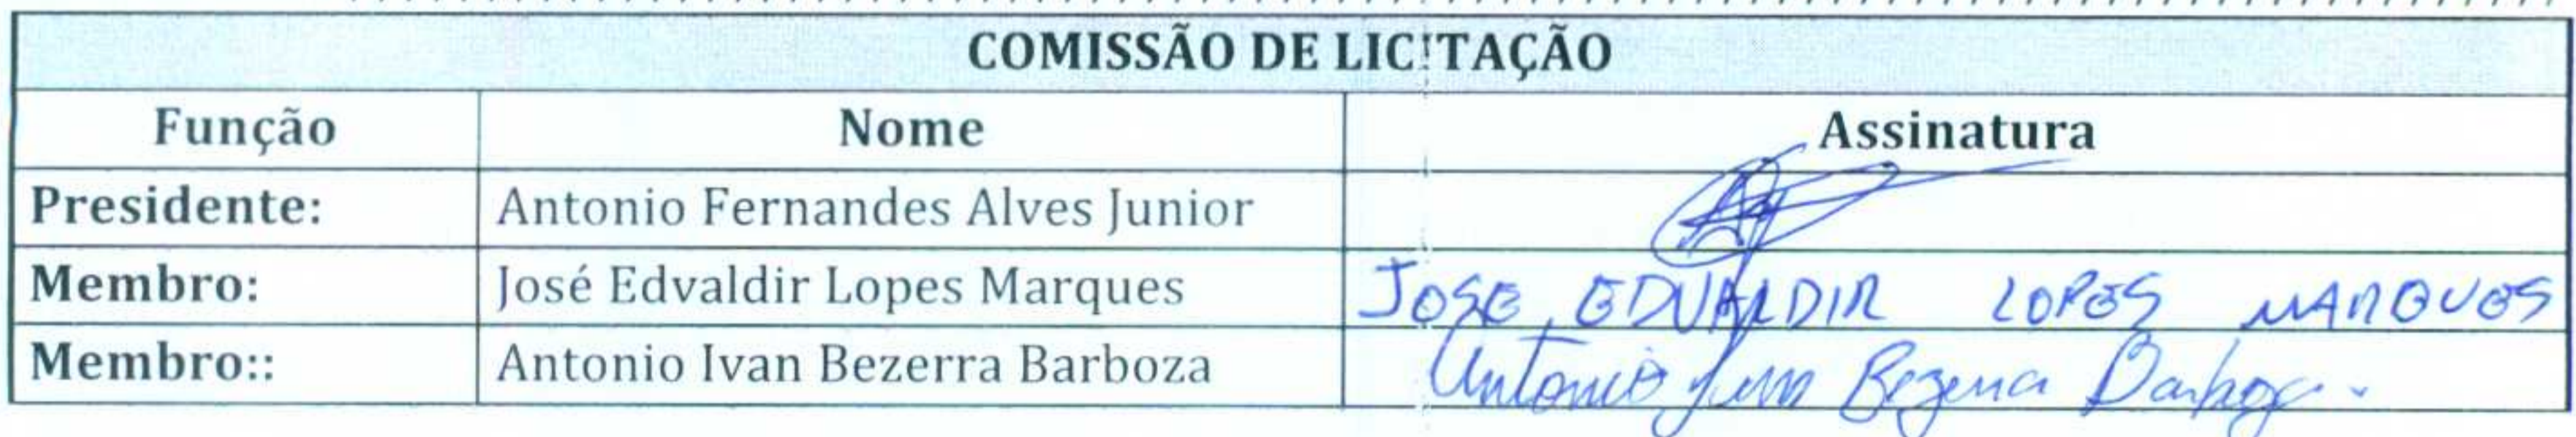 COMISSÃO DE LICITAÇÃO
Função Nome Assinatura
Presidente: Antonio Fernandes Alves Junior
Membro: José Edvaldir Lopes Marques JOSE EDVALDIR LOPES MARQUES
Membro:: Antonio Ivan Bezerra Barboza Antonio Ivan Bezerra Barboza.